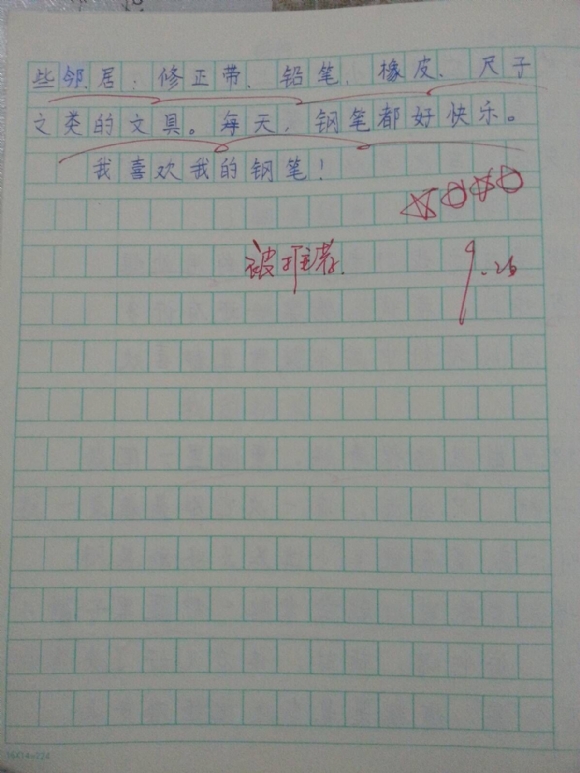 些邻居：修正带、铅笔、橡皮、尺子
之类的文具。每天，钢笔都好快乐。
我喜欢我的钢笔！
被推荐.
9.26